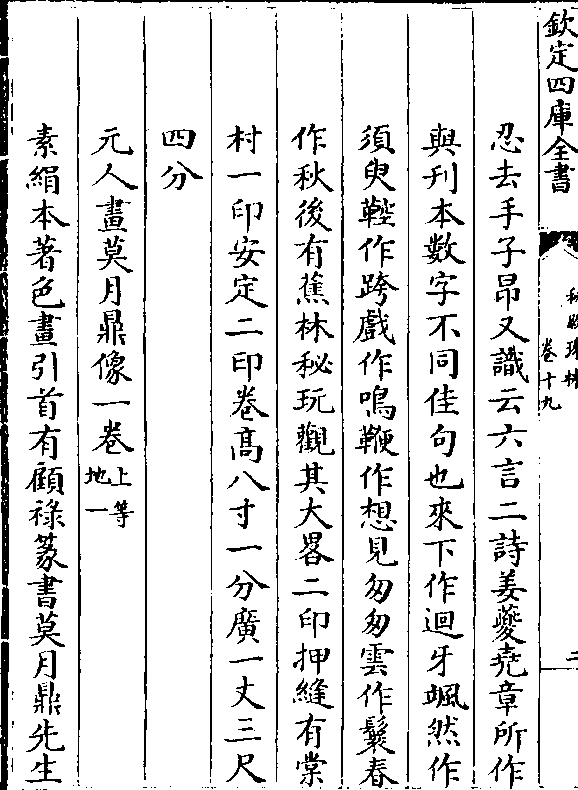 欽定四庫全書
秘殿珠林
卷十九
二
忍去手子昂又識云六言二詩姜夔堯章所作
與刋本數字不同佳句也來下作迴牙颯然作
須臾鞚作跨戲作鳴鞭作想見匆匆雲作鬟春
作秋後有蕉林秘玩觀其大畧二印押縫有棠
村一印安定二印卷髙八寸一分廣一丈三尺
四分
元人畫莫月鼎像一卷上等地一
素絹本著色畫引首有顧祿篆書莫月鼎先生